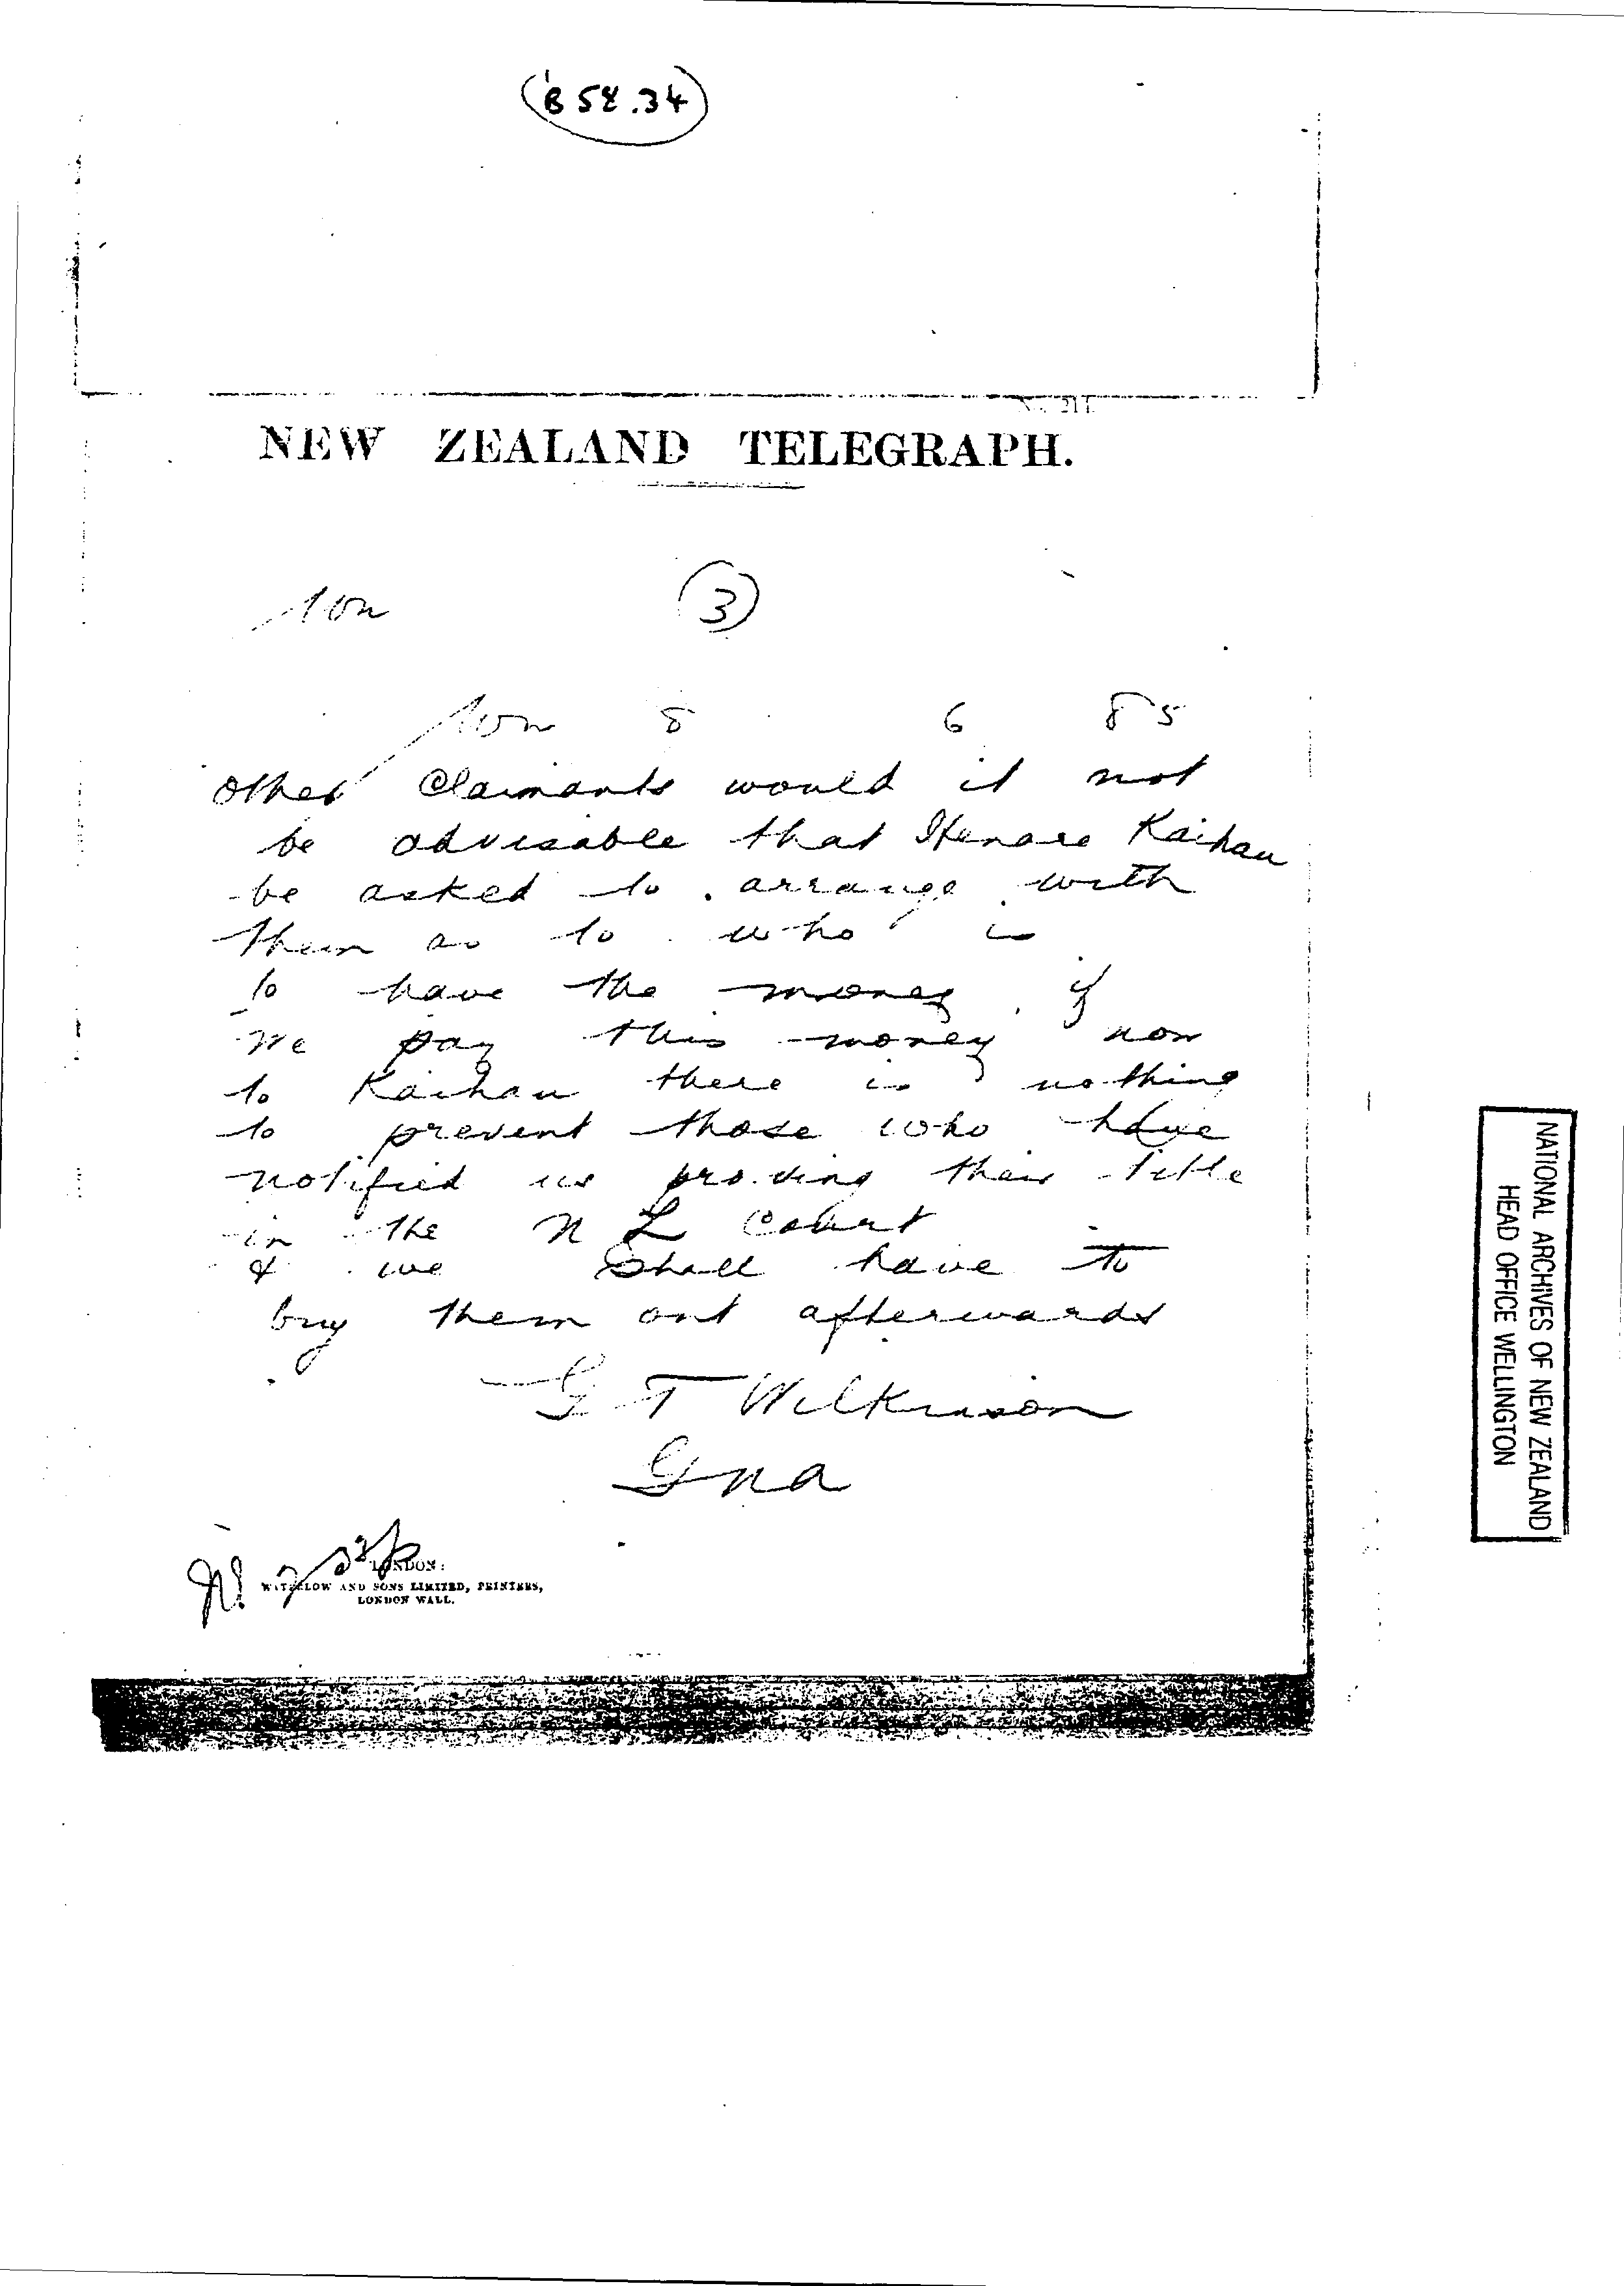 B 58.34
NEW ZEALAND TELEGRAPH.
3
8 6 85
other Claimants would it not
be advisable that Henare Kaihau
be asked to arrange with
them as to who is
to have the money. if
we pay this money now
to Kaihau there is nothing
to prevent those who have
notified us proving their title
in the N L Court
& we shall have to
buy them out afterwards
G T Wilkinson
Gna
LONDON:
WATERLOW AND SONS LIMITED, PRINTERS,
LONDON WALL.
NATIONAL ARCHIVES OF NEW ZEALAND
HEAD OFFICE WELLINGTON